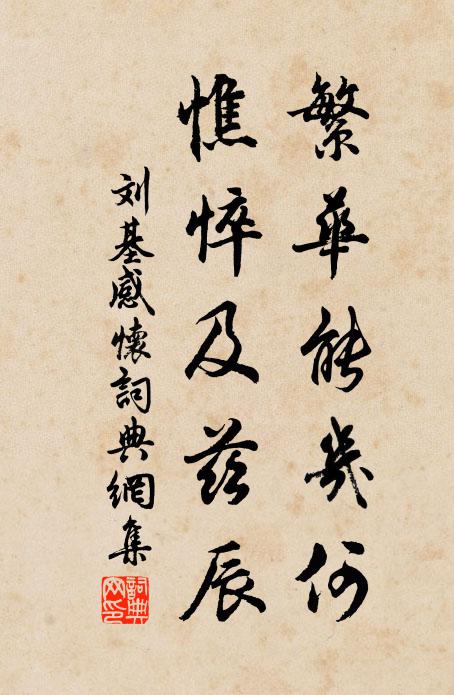 繁華能幾何
憔悴及茲辰
刘基感懷詞典網集
詞典网印